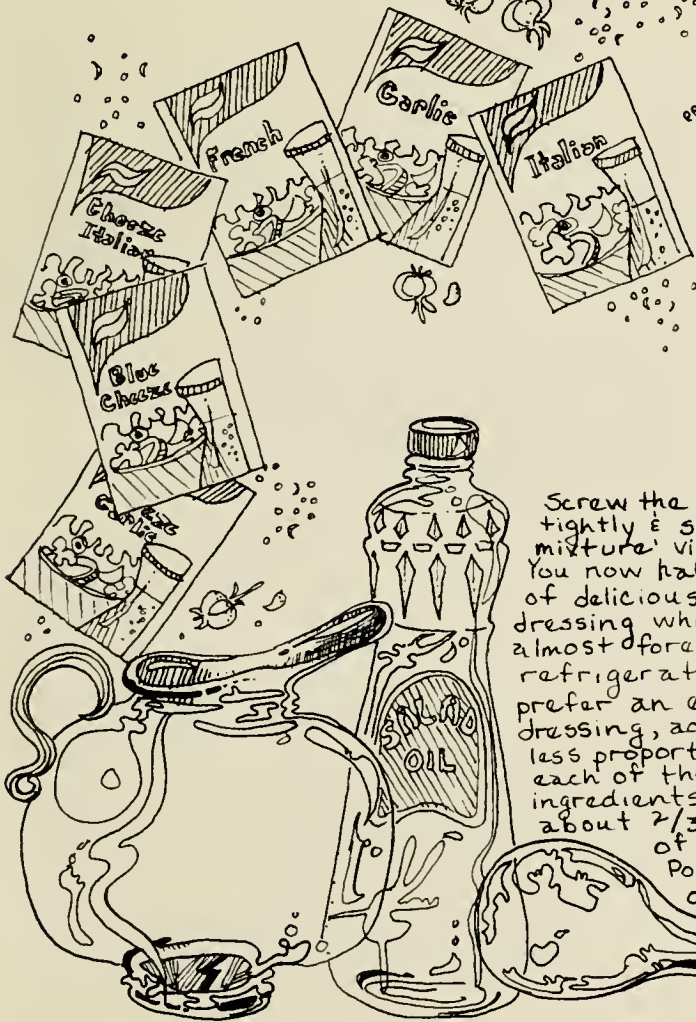 Garlic
French
Italian
Cheeze
Italian
Blue
Cheeze
Garlic
SALAD
OIL
Screw the
tightly & s
mixture vi
You now ha
of delicious
dressing whi
almost fore
refrigerat
prefer an e
dressing, ad
less proport
each of th
ingredients
about 2/3
of
Po